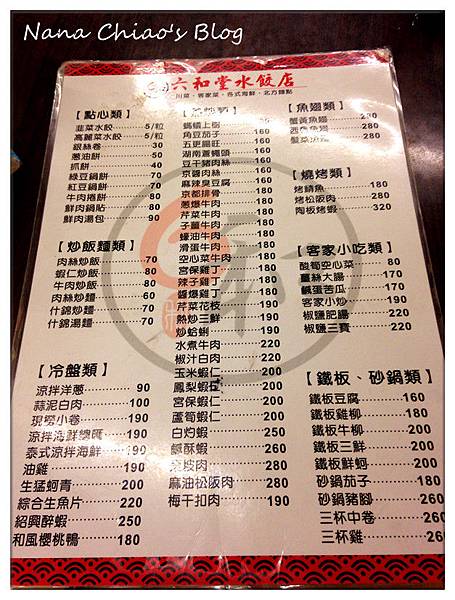 Nana Chiao's Blog
六和堂水餃店
川菜、客家菜、各式海鮮、北方麵點
【點心類】
韭菜水餃 5/粒
高麗菜水餃 5/粒
銀絲卷 30
蔥油餅 50
抓餅 40
綠豆鍋餅 70
紅豆鍋餅 70
牛肉捲餅 80
鮮肉鍋貼 80
鮮肉湯包 90
【炒飯麵類】
肉絲炒飯 70
蝦仁炒飯 80
牛肉炒飯 80
肉絲炒麵 60
什錦炒麵 70
什錦湯麵 70
【冷盤類】
涼拌洋蔥 90
蒜泥白肉 100
現撈小卷 190
涼拌海鮮總匯 190
泰式涼拌海鮮 190
油雞 190
生猛蚵青 200
綜合生魚片 220
紹興醉蝦 250
和風櫻桃鴨 180
螞蟻上樹
角豆茄子 160
五更腸旺 160
湖南蒼蠅頭 160
豆干豬肉絲 160
京醬肉絲 160
麻辣臭豆腐 160
京都排骨 180
蔥爆牛肉 180
芹菜牛肉 180
子薑牛肉 180
蠔油牛肉 180
滑蛋牛肉 180
空心菜牛肉 180
宮保雞丁 180
辣子雞丁 180
醬爆雞丁 180
芹菜花枝 190
熱炒三鮮 190
炒蛤蜊 190
水煮牛肉 220
椒汁白肉 220
玉米蝦仁 200
鳳梨蝦仁 200
宮保蝦仁 200
蘆筍蝦仁 200
白灼蝦 250
鹹酥蝦 260
坡肉 280
麻油松阪肉 280
梅干扣肉 190
【魚翅類】
蟹黃魚翅 280
魚翅
魚翅 280
【燒烤類】
烤鯖魚 180
烤松阪肉 280
陶板烤蝦 320
【客家小吃類】
酸筍空心菜 80
薑絲大腸 180
鹹蛋苦瓜 180
客家小炒 190
椒鹽肥腸 220
椒鹽三寶 220
【鐵板、砂鍋類】
鐵板豆腐 160
鐵板雞柳 180
鐵板牛柳 200
鐵板三鮮 200
鐵板鮮蚵 200
砂鍋茄子 180
砂鍋豬腳 260
三杯中卷 260
三杯雞 260